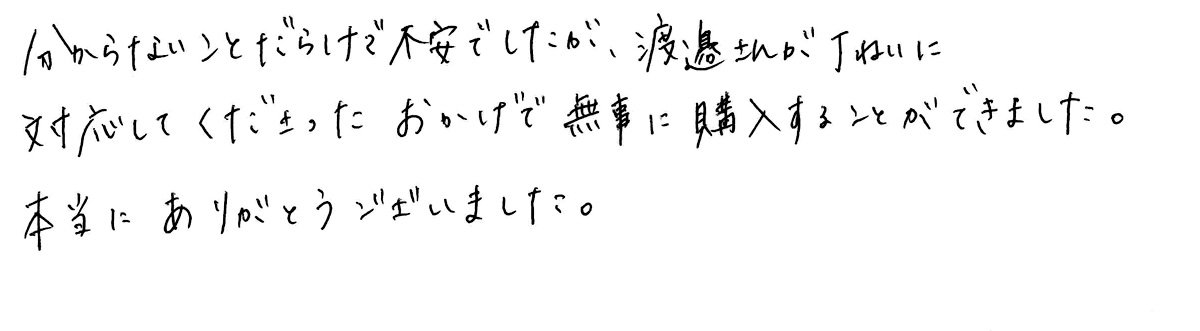 分からないことだらけで不安でしたが、渡邉さんが丁ねいに
対応してくださった おかげで 無事に購入することができました。
本当に ありがとうございました。